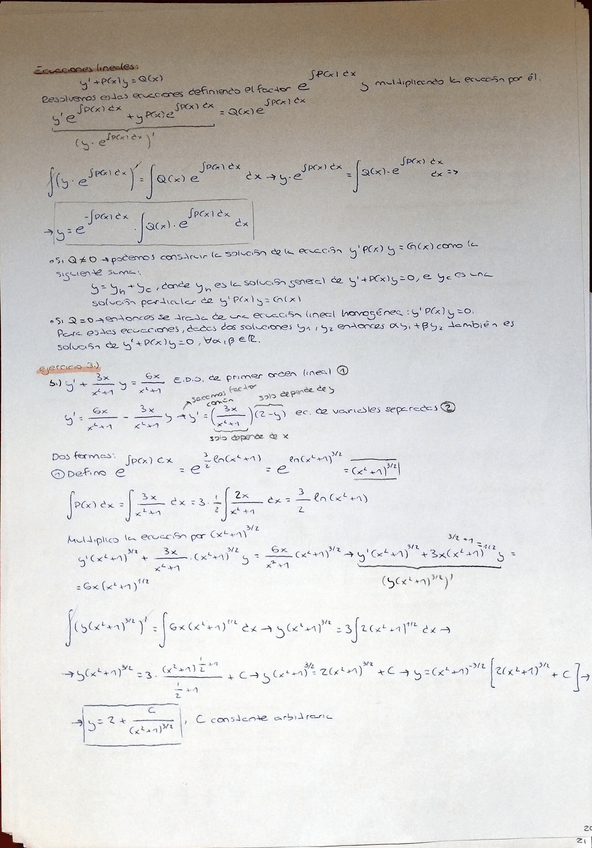 Ecuaciones lineales:
y' + P(x)y = Q(x)
Resolvemos estas ecuaciones definiendo el factor e^{∫P(x) dx} y multiplicando la ecuación por él.
y' e^{∫P(x) dx} + y P(x) e^{∫P(x) dx} = Q(x) e^{∫P(x) dx}
(y · e^{∫P(x) dx})'
∫(y · e^{∫P(x) dx})' = ∫Q(x) e^{∫P(x) dx} dx → y · e^{∫P(x) dx} = ∫Q(x) · e^{∫P(x) dx} dx =>
→ y = e^{-∫P(x) dx} · ∫Q(x) · e^{∫P(x) dx} dx
• Si Q ≠ 0 → podemos construir la solución de la ecuación y'P(x)y = G(x) como la
siguiente suma:
y = y_h + y_c, donde y_h es la solución general de y' + P(x)y = 0, e y_c es una
solución particular de y'P(x)y = G(x)
• Si Q = 0 → entonces se trata de una ecuación lineal homogénea: y'P(x)y = 0.
Para estas ecuaciones, dadas dos soluciones y_1, y_2 entonces αy_1 + βy_2 también es
solución de y' + P(x)y = 0, ∀α, β ∈ ℝ.
ejercicio 3.)
b.) y' + 3x/(x²+1) y = 6x/(x²+1) E.D.O. de primer orden lineal ①
sacamos factor común
solo depende de y
y' = 6x/(x²+1) - 3x/(x²+1) y → y' = (3x/(x²+1)) (2-y) ec. de variables separadas ②
solo depende de x
Dos formas:
① Defino e^{∫P(x) dx} = e^{3/2 ln(x²+1)} = e^{ln(x²+1)^{3/2}} = (x²+1)^{3/2}
∫P(x) dx = ∫ 3x/(x²+1) dx = 3 · 1/2 ∫ 2x/(x²+1) dx = 3/2 ln(x²+1)
Multiplico la ecuación por (x²+1)^{3/2}
y'(x²+1)^{3/2} + 3x/(x²+1) · (x²+1)^{3/2} y = 6x/(x²+1) (x²+1)^{3/2} → y'(x²+1)^{3/2} + 3x(x²+1)^{1/2} y =
(y(x²+1)^{3/2})'
= 6x(x²+1)^{1/2}
∫(y(x²+1)^{3/2})' = ∫6x(x²+1)^{1/2} dx → y(x²+1)^{3/2} = 3∫2(x²+1)^{1/2} dx →
→ y(x²+1)^{3/2} = 3 · (x²+1)^{1/2+1}/(1/2+1) + C → y(x²+1)^{3/2} = 2(x²+1)^{3/2} + C → y = (x²+1)^{-3/2} [2(x²+1)^{3/2} + C] →
→ y = 2 + C/(x²+1)^{3/2}, C constante arbitraria
20
21